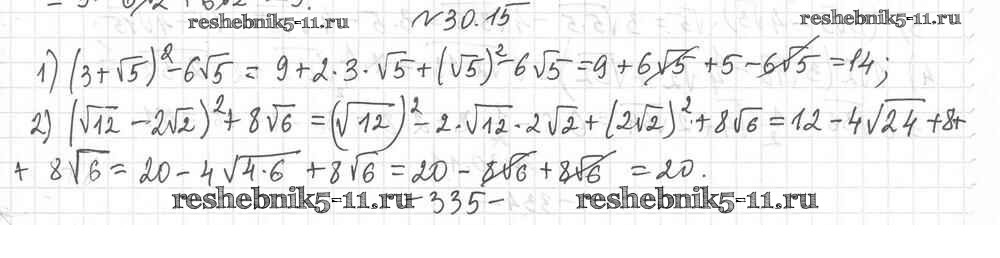 №30.15
reshebnik5-11.ru reshebnik5-11.ru
1) (3+√5)²-6√5 = 9+2·3·√5+(√5)²-6√5=9+6√5+5-6√5=14;
2) (√12-2√2)²+8√6=(√12)²-2·√12·2√2+(2√2)²+8√6=12-4√24+8+
+ 8√6=20-4√4·6+8√6=20-8√6+8√6=20.
reshebnik5-11.ru -335- reshebnik5-11.ru